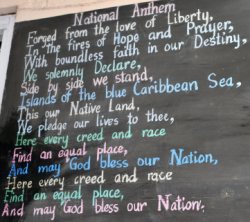 National Anthem
Forged from the love of Liberty,
In the fires of Hope and Prayer,
With boundless faith in our Destiny,
We solemnly Declare,
Side by side we stand,
Islands of the blue Caribbean Sea,
This our Native Land,
We pledge our lives to thee,
Here every creed and race
Find an equal place,
And may God bless our Nation,
Here every creed and race
Find an equal place,
And may God bless our Nation.